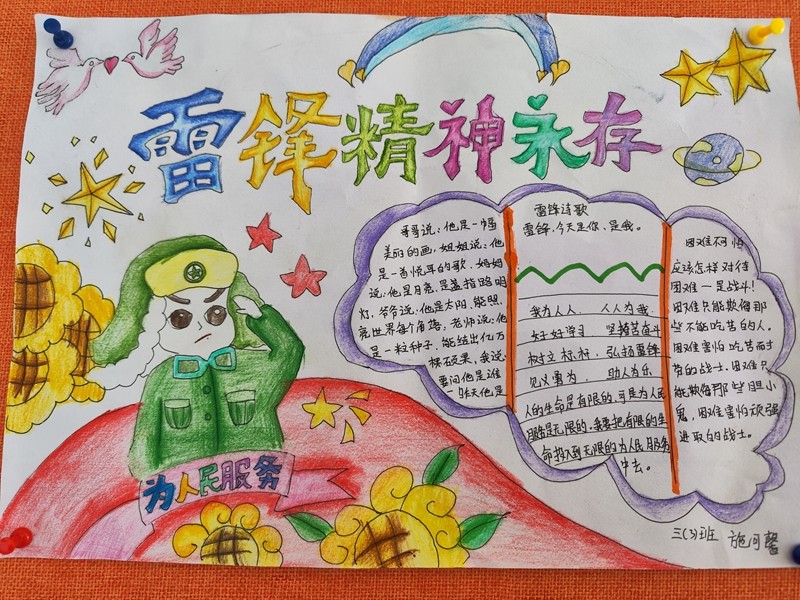 雷锋精神永存
哥哥说：他是一幅
美丽的画，姐姐说：他
是一首悦耳的歌，妈妈
说：他是月亮，是盏指路明
灯，爷爷说：他是太阳，能照
亮世界每个角落，老师说：他
是一粒种子，能结出亿万
棵硕果，我说：
要问他是谁
昨天他是
雷锋诗歌
雷锋，今天是你、是我。
我为人人， 人人为我
好好学习 坚持苦奋斗
树立标杆，弘扬雷锋
见义勇为， 助人为乐
人的生命是有限的，可是为人民
服务是无限的，我要把有限的生
命投入到无限的为人民服务
中去。
困难不可怕
应该怎样对待
困难—是战斗！
困难只能欺侮那
些不能吃苦的人。
困难害怕吃苦耐
劳的战士。困难只
能欺侮那些胆小
鬼，困难害怕顽强
进取的战士。
为人民服务
三(3)班 施可馨